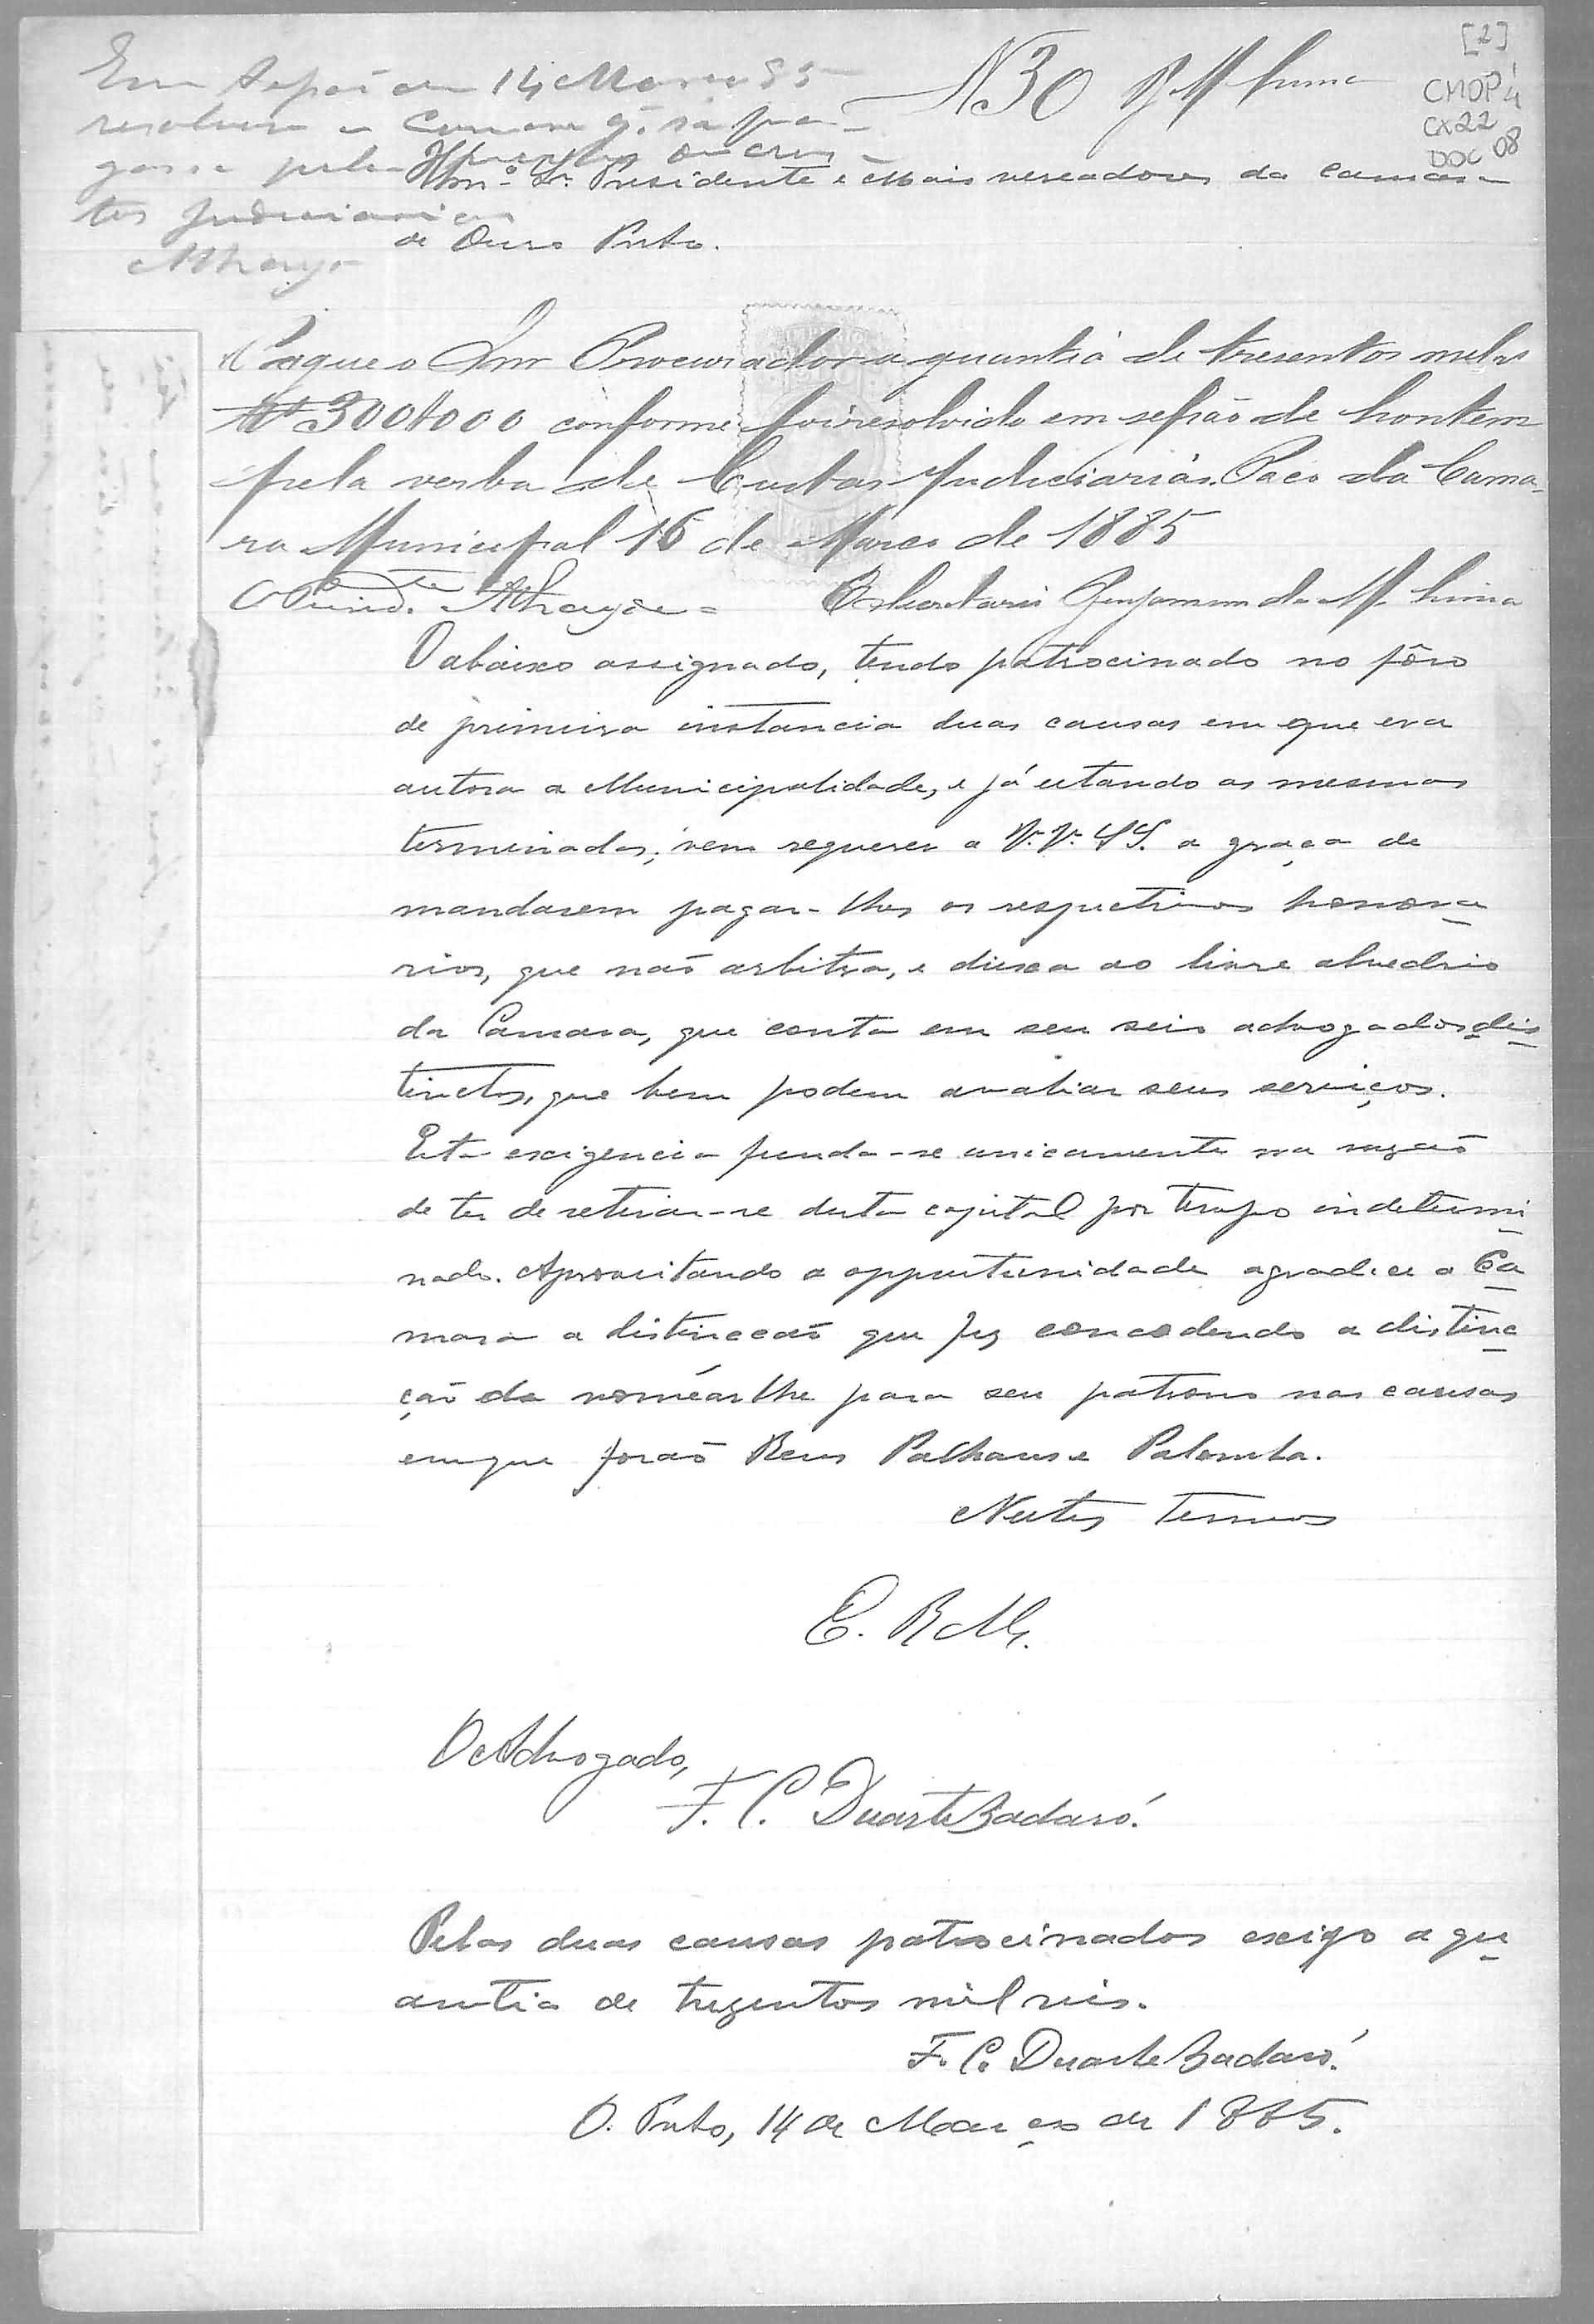 [2]
CMOP 4
CX22
DOC 08
N 30 B M Lima
Em sessão de 14 Março 85
resolveu a Camara q. se pa-
gasse pela
tas judiciarias
Athayde
Illmo. Sr. Presidente e mais vereadores da camara
de Ouro Preto.
Pague o Snr Procurador a quantia de tresentos mil rs
Rs 300$000 conforme foi resolvido em sessão de hontem
pela verba de Custas Judiciarias. Paço da Cama-
ra Municipal 15 de Março de 1885
O Presid.te Athayde = O Secretario Benjamim de M. Lima
O abaixo assignado, tendo patrocinado no fôro
de primeira instancia duas causas em que era
autora a Municipalidade, e já estando as mesmas
terminadas; vem requerer a V. V. SS. a graça de
mandarem pagar-lhes os respectivos honora
rios, que não arbitra, e deixa ao livre alvedrio
da Camara, que conta em seu seio advogados dis
tinctos, que bem podem avaliar seus serviços.
Esta exigencia funda-se unicamente na razão
de ter de retirar-se desta capital por tempo indetermi
nado. Aproveitando a opportunidade agradece a Ca
mara a distincção que fez concedendo a distinc
ção de nomearlhe para seu patrono nas causas
em que forão Reus Palhares e Palomba.
Nestes Termos
E. R. M.
O Advogado,
F. C. Duarte Badaró.
Pelas duas causas patrocinadas exigo a qu
antia de trezentos mil reis.
F. C. Duarte Badaró.
O. Preto, 14 de Março de 1885.